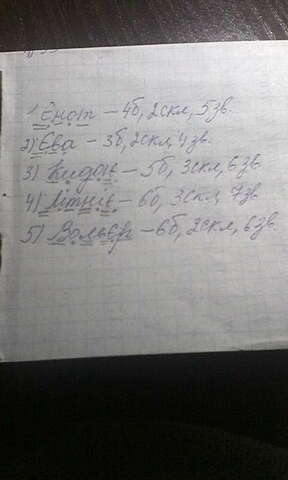 1) Єнот – 4б, 2скл, 5зв.
2) Єва – 3б, 2скл, 4зв.
3) Кидає – 5б, 3скл, 6зв
4) Літнє – 6б, 3скл, 7зв
5) Вольєр – 6б, 2скл, 6зв.